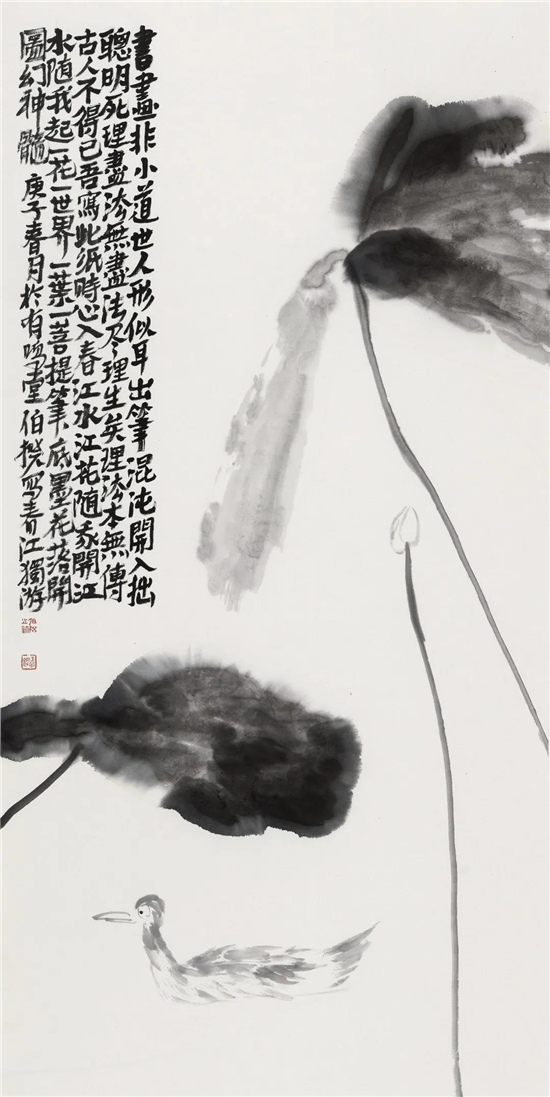 書畫非小道世人形似耳出筆混沌開入拙
聰明死理盡法無盡法尽理生矣理法本無傳
古人不得已吾寫此紙時心入春江水江花随我開江
水随我起一花一世界一葉一菩提筆底墨花落開
圖幻神髓 庚子春月於有鳴堂伯揆写春江獨游